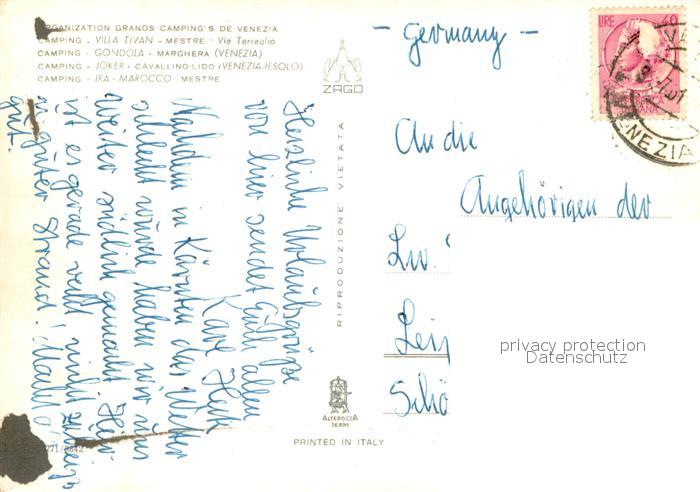 ORGANIZATION GRANDS CAMPING'S DE VENEZIA
CAMPING - VILLA TIVAN - MESTRE - Via Terraglio
CAMPING - GONDOLA - MARGHERA (VENEZIA)
CAMPING - JOKER - CAVALLINO-LIDO (VENEZIA-JESOLO)
CAMPING - IRA - MAROCCO MESTRE
ZAGO
RIPRODUZIONE VIETATA
Herzliche Urlaubsgrüße
von hier sendet Euch allen
Nachdem in Kärnten das Wetter
schlecht wurde haben wir uns
weiter südlich gemacht. Hier
ist es gerade recht nicht
guter Strand!
gut.
- Germany -
LIRE
VENEZIA
An die
Angehörigen der
Lw.
Leip
Schö
privacy protection
Datenschutz
ALTEROCCA
TERNI
PRINTED IN ITALY